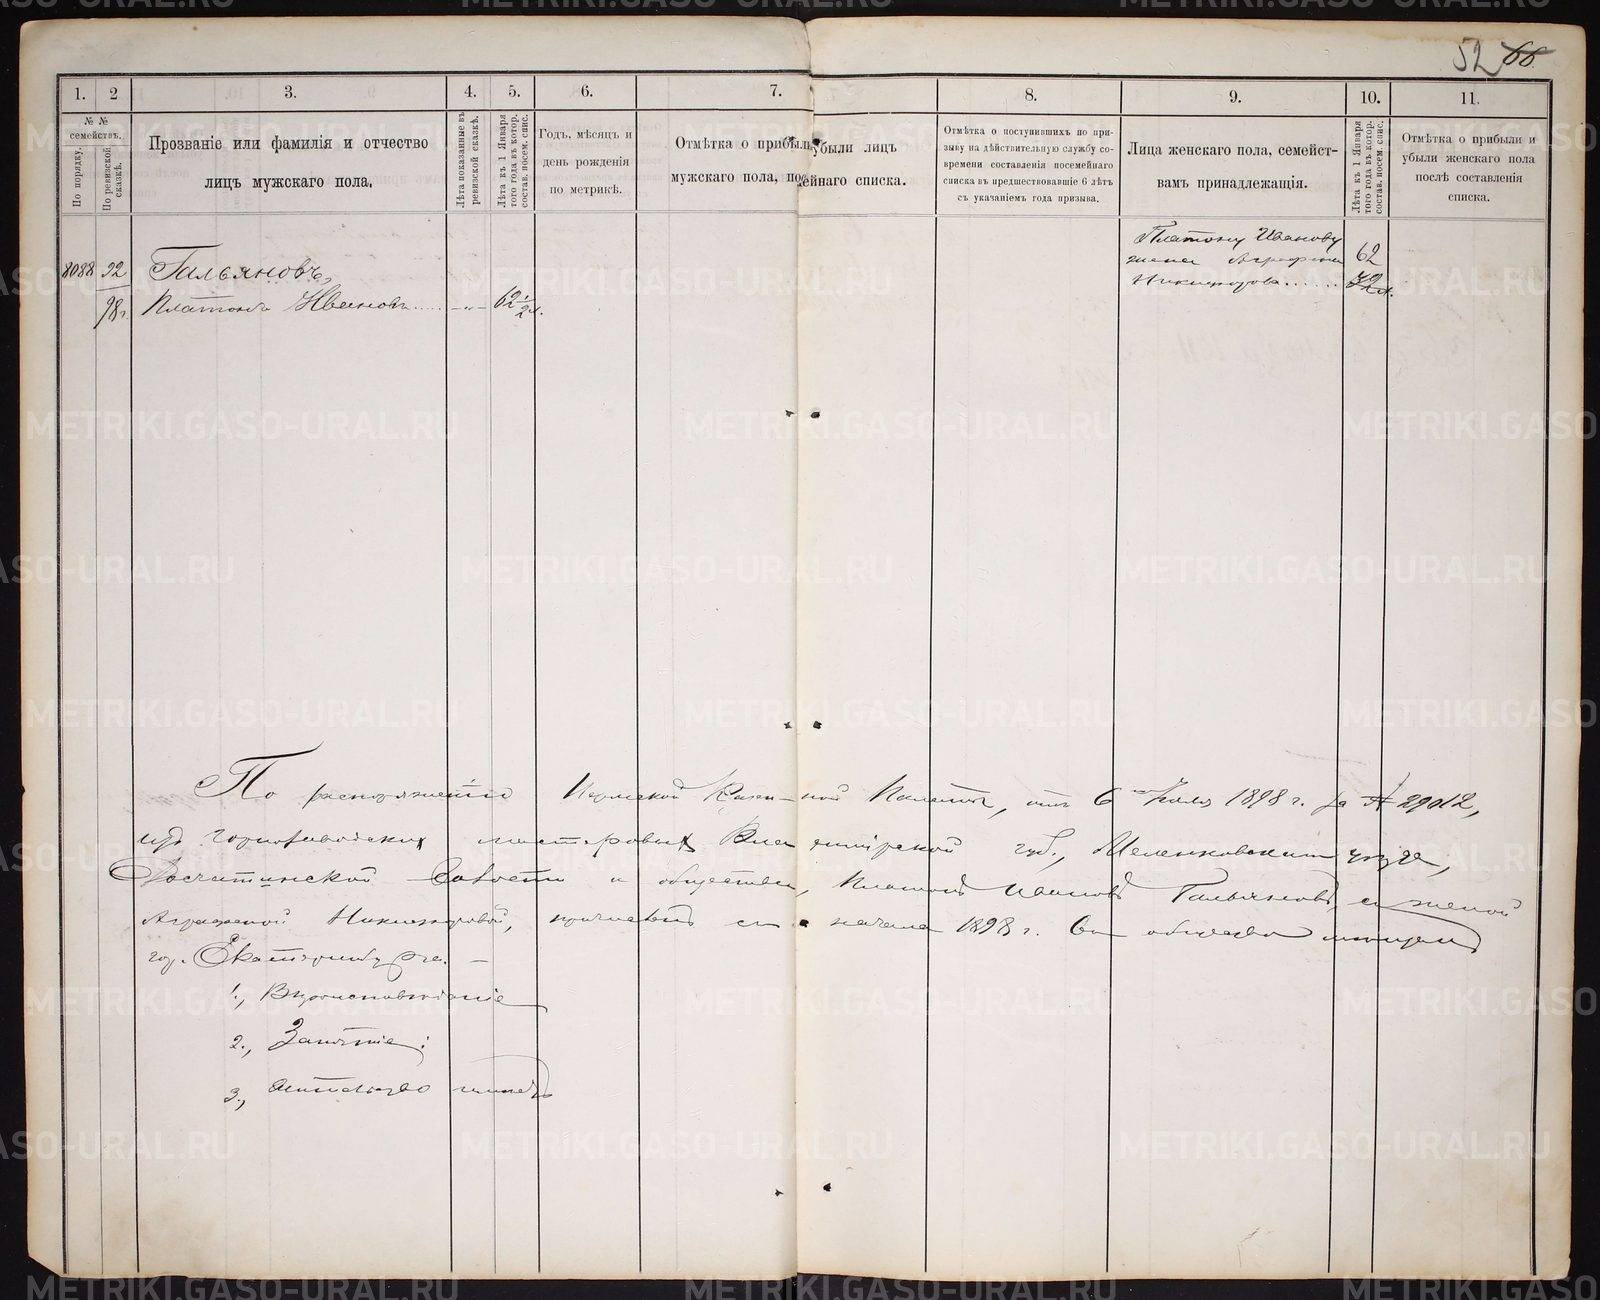 52 66
1. 2 3. 4. 5. 6. 7. 8. 9. 10. 11.
№ № семействъ.
По порядку.
По ревизской сказкѣ.
Прозваніе или фамилія и отчество
лицъ мужскаго пола.
Лѣта показанные въ ревизской сказкѣ.
Лѣта къ 1 Января того года въ котор. состав. посем. спис.
Годъ, мѣсяцъ и
день рожденія
по метрикѣ.
Отмѣтка о прибыли убыли лицъ
мужскаго пола, посемейнаго списка.
Отмѣтка о поступившихъ по при-
зыву на дѣйствительную службу со-
времени составленія посемейнаго
списка въ предшествовавшіе 6 лѣтъ
съ указаніемъ года призыва.
Лица женскаго пола, семейст-
вамъ принадлежащія.
Лѣта къ 1 Января того года въ котор. состав. посем. спис.
Отмѣтка о прибыли и
убыли женскаго пола
послѣ составленія
списка.
8088 92 Гальяновъ,
98 г. Платонъ Ивановъ 62 1/2 л.
Платону Иванову
жена Аграфена 62
Никифорова
По распоряженію Пермской Казенной Палаты, отъ 6 Іюля 1898 г. за № 29012,
изъ горнозаводскихъ мастеровыхъ Владимірской губ., Меленковскаго уѣзда,
Досчатинской волости и общества, Платонъ Ивановъ Гальяновъ, съ женой
Аграфеной Никифоровой, причисленъ съ начала 1898 г. въ общество мѣщанъ
гор. Екатеринбурга. —
1., Вѣроисповѣданіе
2., Занятіе:
3., Жительство имѣетъ
METRIKI.GASO-URAL.RU